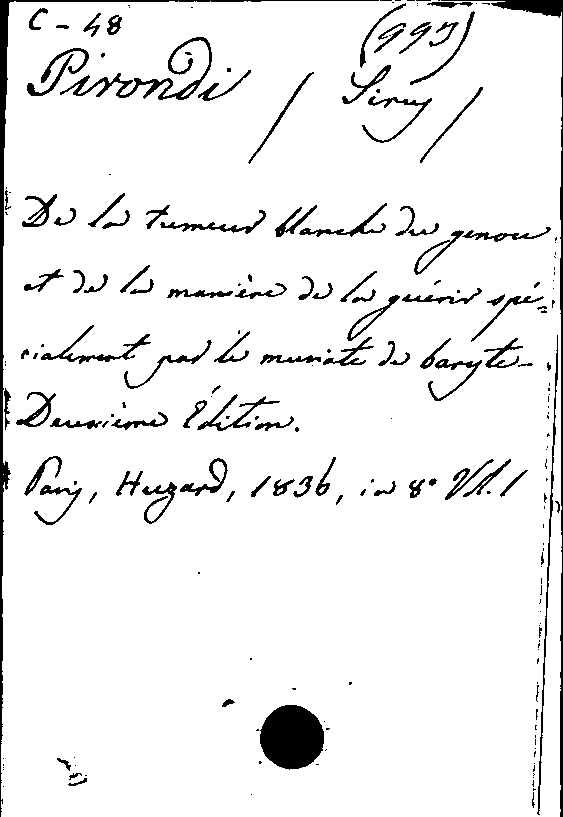 C - 48 (995)
Pirondi / Sirus /
De la tumeur blanche du genou
et de la manière de la guérir spé-
cialement par le muriate de baryte -
Deuxième Édition.
Paris, Huzard, 1836, in 8° Vol. 1